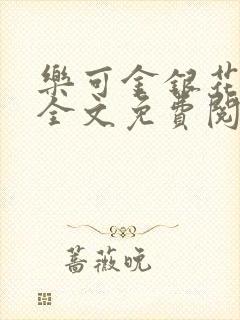 樂可金銀花
全文免費閱
薔薇晚